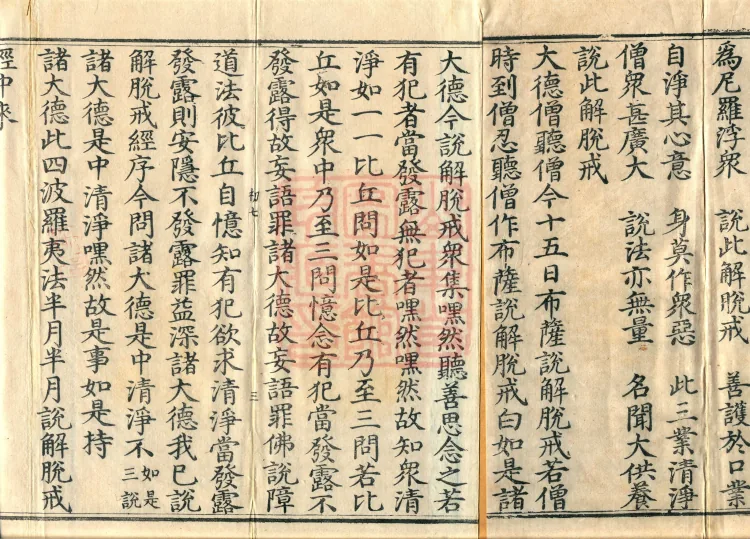 為尼羅浮衆　說此解脫戒　善護於口業
自淨其心意　身莫作衆惡　此三業清淨
僧衆甚廣大　說法亦無量　名聞大供養
說此解脫戒
大德僧聽僧今十五日布薩說解脫戒若僧
時到僧忍聽僧作布薩說解脫戒白如是諸
大德今說解脫戒衆集嘿然聽善思念之若
有犯者當發露無犯者嘿然嘿然故知衆清
淨如一一比丘問如是比丘乃至三問若比
丘如是衆中乃至三問憶念有犯當發露不
發露得故妄語罪諸大德故妄語罪佛說障
初七
三
道法彼比丘自憶知有犯欲求清淨當發露
發露則安隱不發露罪益深諸大德我已說
解脫戒經序今問諸大德是中清淨不如是三說
諸大德是中清淨嘿然故是事如是持
諸大德此四波羅夷法半月半月說解脫戒
經中來